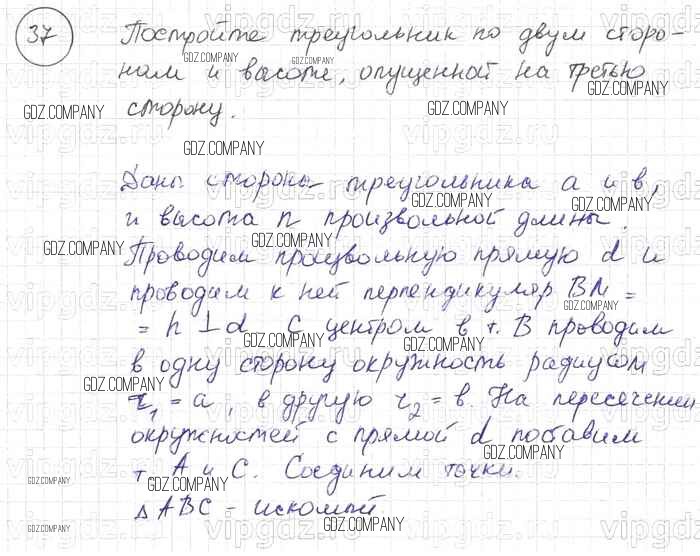 37 Постройте треугольник по двум сторо-
нам и высоте, опущенной на третью
сторону.
Даны стороны треугольника a и в,
и высота h произвольной длины.
Проводим произвольную прямую d и
проводим к ней перпендикуляр BN =
= h ⊥ d С центром в т. B проводим
в одну сторону окружность радиусом
r₁ = a, в другую r₂ = в. На пересечении
окружностей с прямой d поставим
т. A и C. Соединим точки.
△ ABC - искомый
GDZ.COMPANY
vipgdz.ru